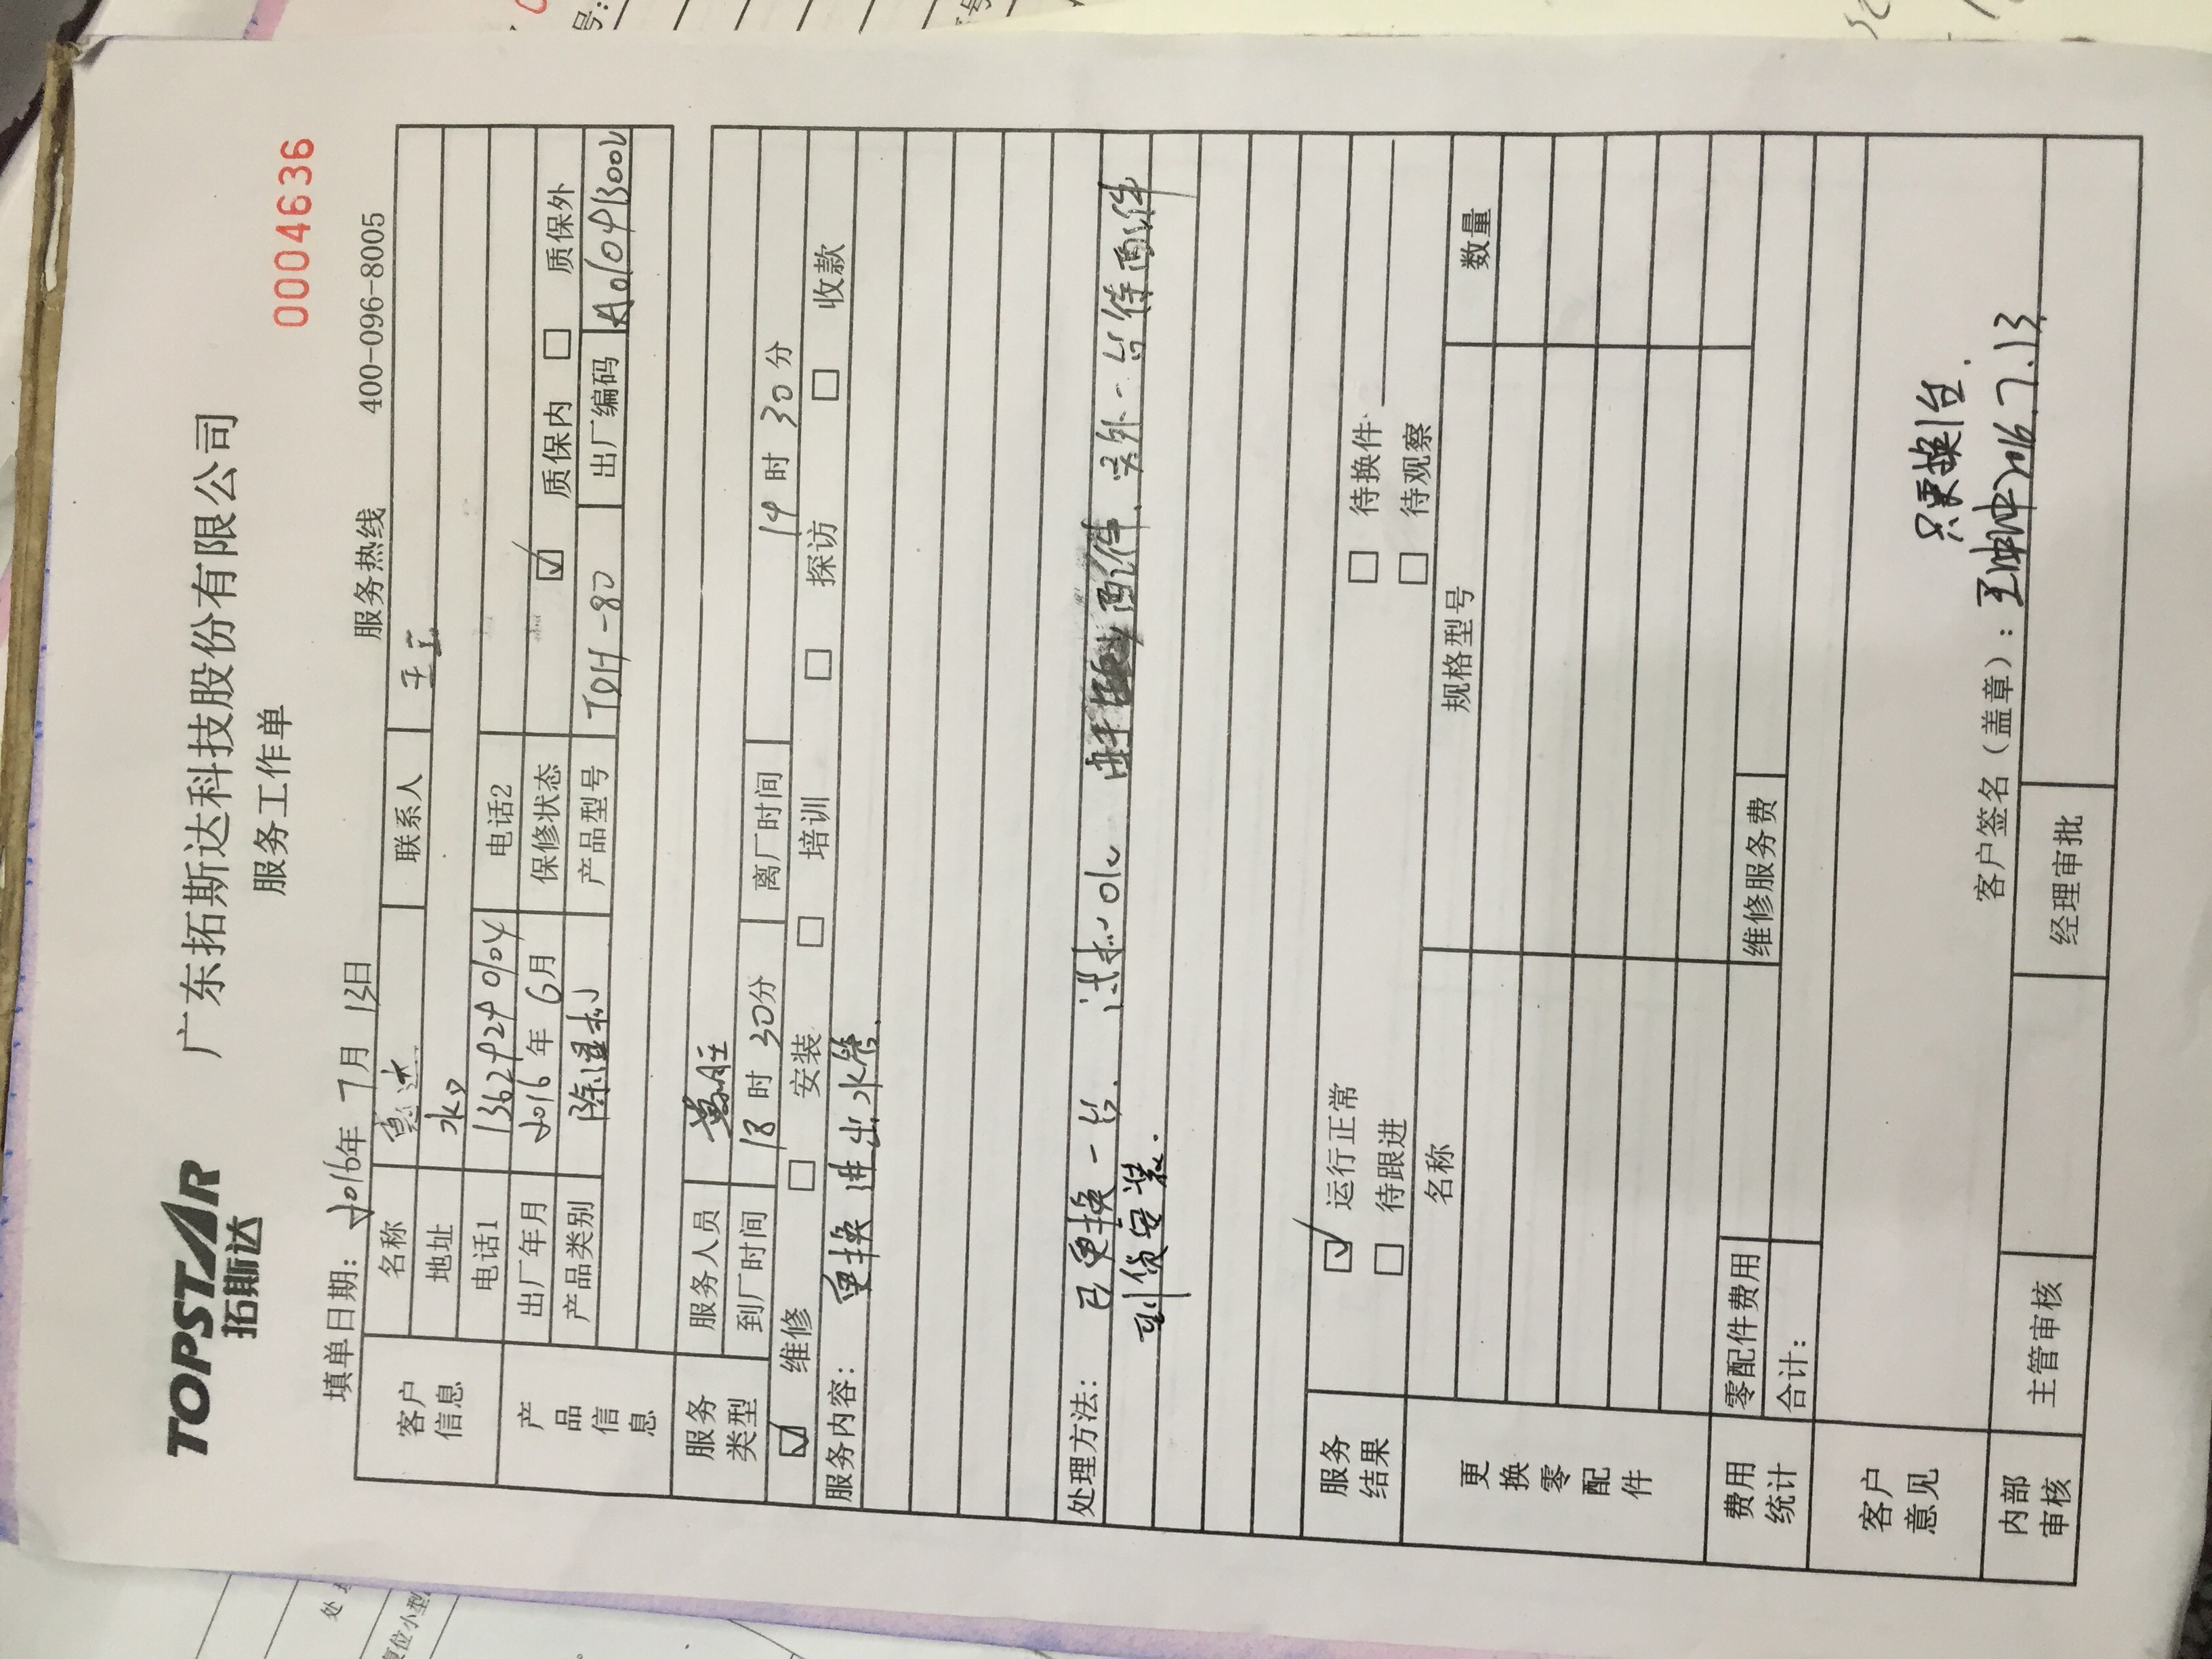 TOPSTAR
拓斯达
广东拓斯达科技股份有限公司
服务工作单
0004636
填单日期: 2016年 7月 13日 服务热线 400-096-8005
客户信息
名称 联系人 王工
地址 水口
电话1 电话2
产品信息
出厂年月 2016年 6月 保修状态 质保内 质保外
产品类别 除湿机 产品型号 TDH-80 出厂编码
服务类型
服务人员
到厂时间 18时 30分 离厂时间 19时 30分
维修 安装 培训 探访 收款
服务内容: 更换进出水管.
处理方法: 已更换一台. 试机OK 配件. 另外一台待配件
到货安装.
服务结果
运行正常 待换件
待跟进 待观察
更换零配件
名称 规格型号 数量
费用统计
零配件费用 维修服务费
合计:
客户意见
只更换1台.
客户签名(盖章): 2016.7.13
内部审核
主管审核 经理审批